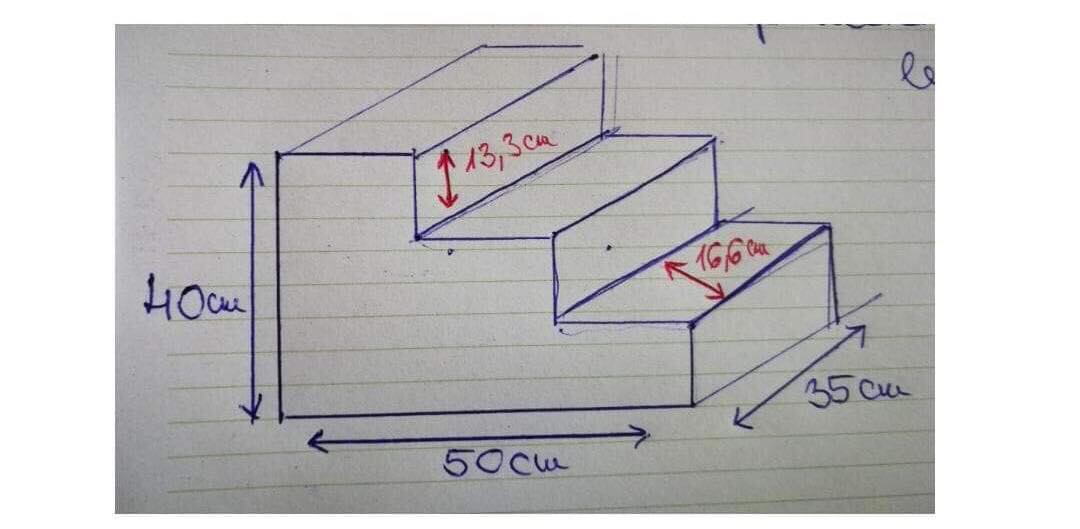 13,3cm
16,6cm
40cm
35cm
50cm